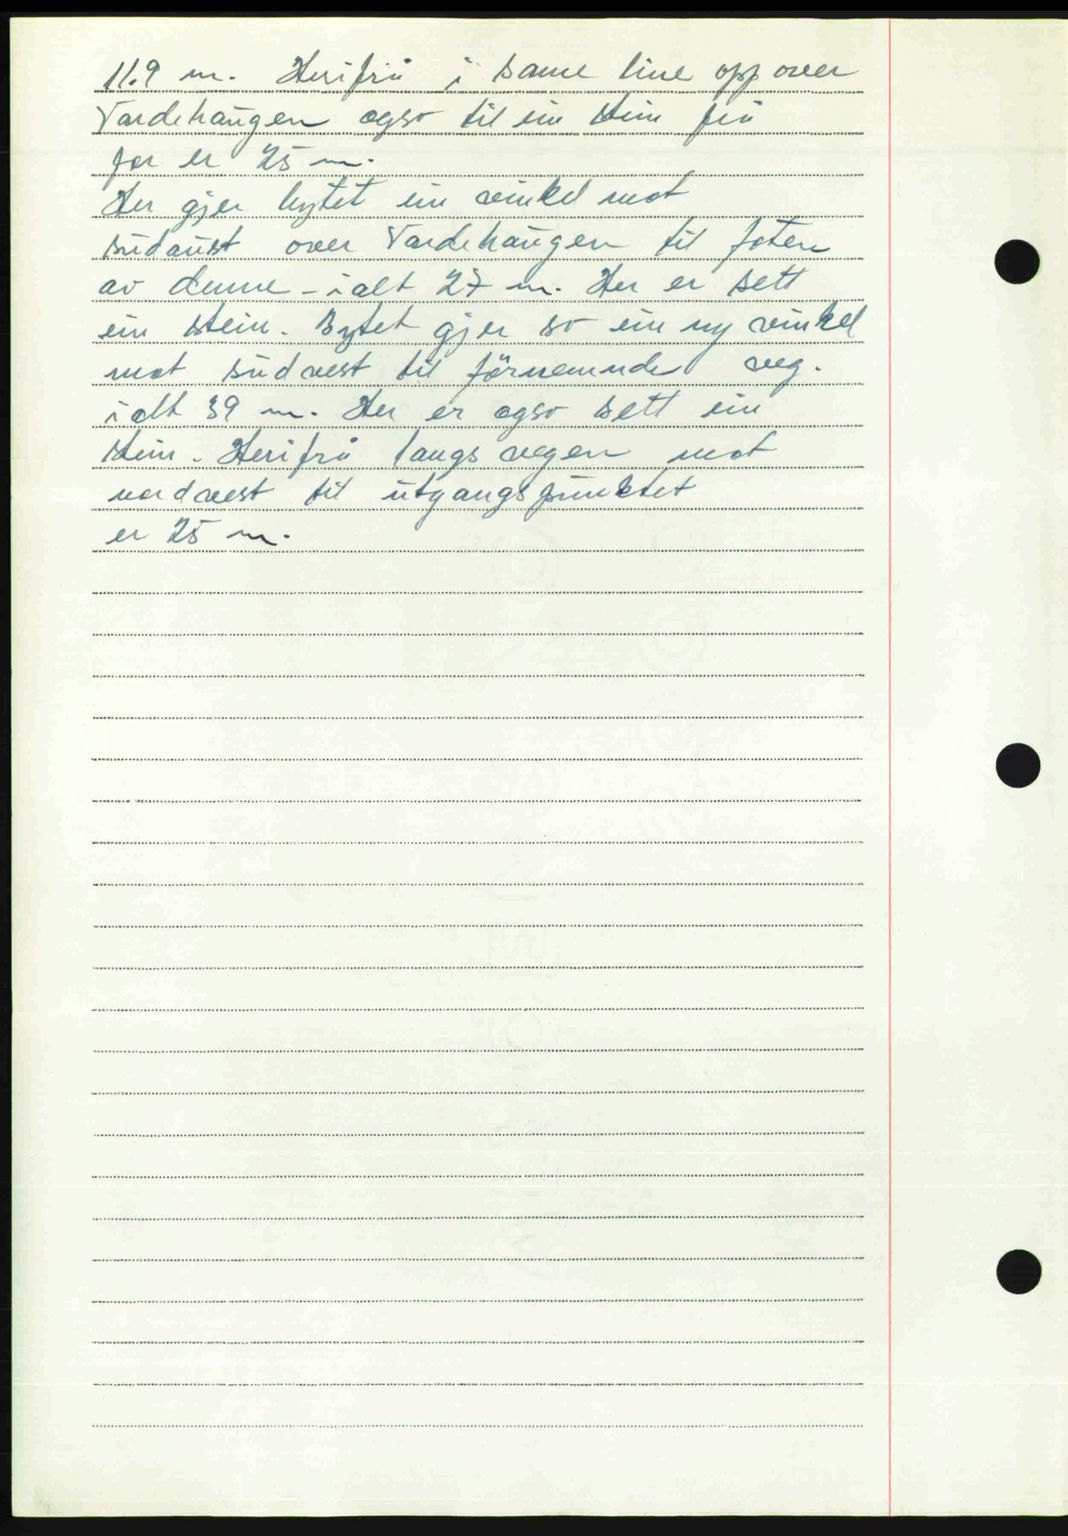 11.9 m. Herifrå i same line opp over
Vardehaugen ogso til ein stein frå
for er 25 m.
Her gjer bytet ein vinkel mot
sudaust over Vardehaugen til foten
av denne - i alt 27 m. Her er sett
ein stein. Bytet gjer so ein ny vinkel
mot sudvest til fornemnde veg.
i alt 39 m. Her er ogso sett ein
stein. Herifrå langs vegen mot
nordvest til utgangspunktet
er 25 m.